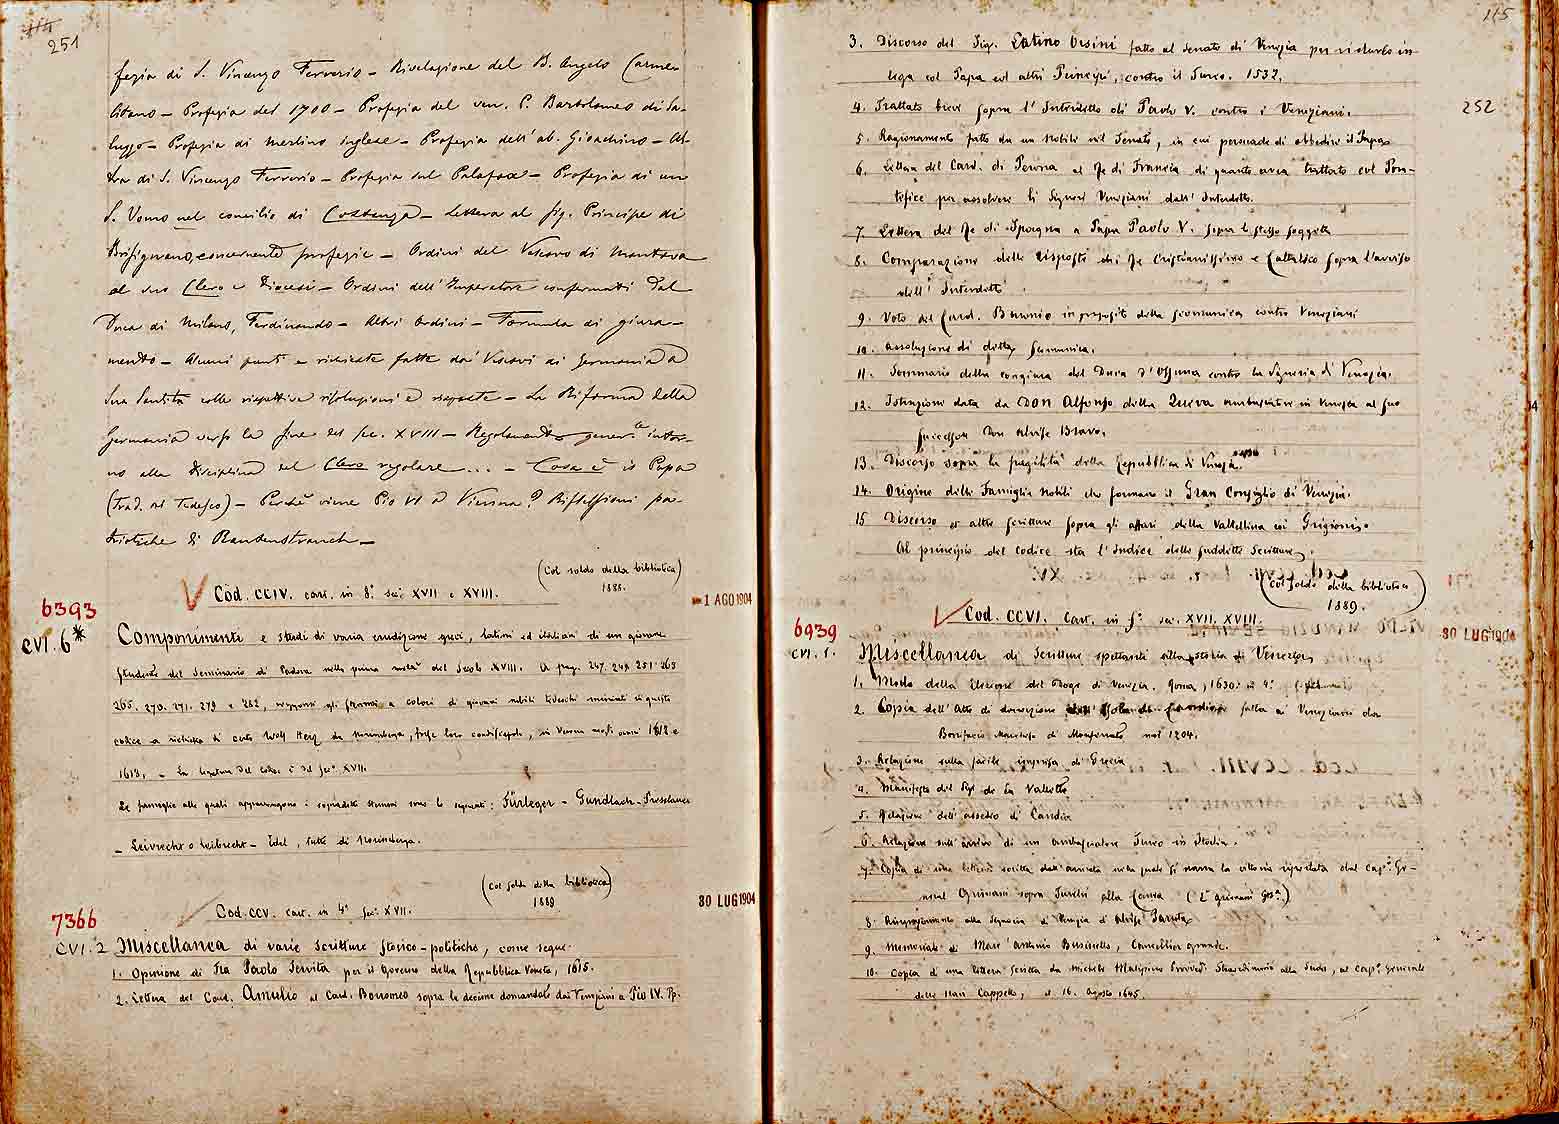 114
251
fezia di S. Vincenzo Ferrerio – Rivelazione del B. Angelo Carme-
litano – Profezia del 1700 – Profezia del ven. P. Bartolomeo di Sa-
luzzo – Profezia di Merlino inglese – Profezia dell'ab. Gioachino – Al-
tra di S. Vincenzo Ferrerio – Profezia sul Palafox – Profezia di un
S. Uomo nel concilio di Costanza – Lettera al Sig. Principe di
concernente profezie – Ordini del Vescovo di Mantova
al suo Clero e Diocesi – Ordini dell'Imperatore confermati dal
Duca di Milano, Ferdinando – Altri Ordini – Formula di giura-
mento – Alcuni punti e richieste fatte dai Vescovi di Germania a
Sua Santità colle rispettive risoluzioni e risposte – La Riforma della
Germania verso la fine del sec. XVIII – Regolamento gener.le intor-
no alla disciplina del Clero regolare... – Cosa è il Papa
(Trad. dal Tedesco) – Perchè viene Pio VI a Vienna? Riflessioni pa-
triotiche di Rautenstrauch –
(Col soldo della biblioteca)
1888.
Cod. CCIV. cart. in 8.° sec. XVII e XVIII.
1 AGO 1904
6393
CVI. 6*
Componimenti e studi di varia erudizione greci, latini ed italiani di un giovane
studente del Seminario di Padova nella prima metà del Secolo XVIII. A pag. 247. 249. 251. 263
265. 270. 271. 279 e 282, veggonsi gli stemmi a colori di giovani nobili tedeschi miniati in questo
codice a richiesta di certo Wolf Herz da Norimberga, forse loro condiscepolo, in Verona negli anni 1612 e
1613. – La legatura del codice è del sec. XVII.
Le famiglie alle quali appartengono i sopradetti stemmi sono le seguenti: Fürleger – Gundlach – Presslauer
– Leivrecht o Leibrecht – Edel, tutte di Norimberga.
(Col soldo della biblioteca)
1889
Cod. CCV. cart. in 4.° sec. XVII.
30 LUG 1904
7366
CVI. 2
Miscellanea di varie scritture storico-politiche, come segue:
1. Opinione di Fra Paolo Servita per il Governo della Repubblica Veneta, 1615.
2. Lettera del Card. Amulio al Card. Borromeo sopra le decime domandate dai Veneziani a Pio IV. Pp.
115
252
3. Discorso del Sig. Latino Orsini fatto al Senato di Venezia per ridurlo in
lega col Papa ed altri Principi, contro il Turco. 1532.
4. Trattato breve sopra l'Interdetto di Paolo V. contro i Veneziani.
5. Ragionamento fatto da un Nobile nel Senato, in cui persuade di obbedire il Papa
6. Lettera del Card. di Perona al Re di Francia di quanto avea trattato col Pon-
tefice per assolvere li Signori Veneziani dall'Interdetto.
7. Lettera del Re di Spagna a Papa Paolo V. sopra lo stesso soggetto
8. Comparazione delle risposte dei Re Cristianissimo e Cattolico sopra l'avviso
dell'Interdetto.
9. Voto del Card. Baronio in proposito della scomunica contro Veneziani
10. Assoluzione di detta scomunica.
11. Sommario della congiura del Duca d'Ossuna contro la Signoria di Venezia.
12. Istruzione data da Don Alfonso della Queva ambasciatore in Venezia al suo
successore Don Alvise Bravo.
13. Discorso sopra la fragilità della Repubblica di Venezia.
14. Origine delle Famiglie Nobili che formano il Gran Consiglio di Venezia.
15 Discorso ed altre scritture sopra gli affari della Valtellina coi Grigioni.
Al principio del codice sta l'Indice delle suddette scritture.
(Col soldo della biblioteca
1889.
Cod. CCVI. cart. in f.° sec. XVII. XVIII.
30 LUG 1904
6939
CVI. 1.
Miscellanea di Scritture spettanti alla storia di Venezia,
1. Modo della Elezione del Doge di Venezia. Roma, 1630. in 4.°
2. Copia dell'Atto di donazione fatta ai Veneziani da
Bonifacio Marchese di Monferrato nel 1204.
3. Relazione sulla facile impresa di Grecia
4. Manifesto del Sig. de la Vallette
5. Relazione dell'assedio di Candia
6. Relazione sull'arrivo di un ambasciatore Turco in Italia.
7. Copia di una lettera scritta dall'armata nella quale si narra la vittoria riportata dal Cap.° Ge-
neral Grimani sopra Turchi alla
8. Ringraziamento alla Signoria di Venezia d'Alvise Paruta
9. Memoriale di Marc'Antonio Businello, Cancellier grande.
10. Copia di una lettera scritta da Michele Malipiero Provved. Straordinario alla Suda, al Cap.° Generale
delle Navi Cappello, il 16. Agosto 1645.